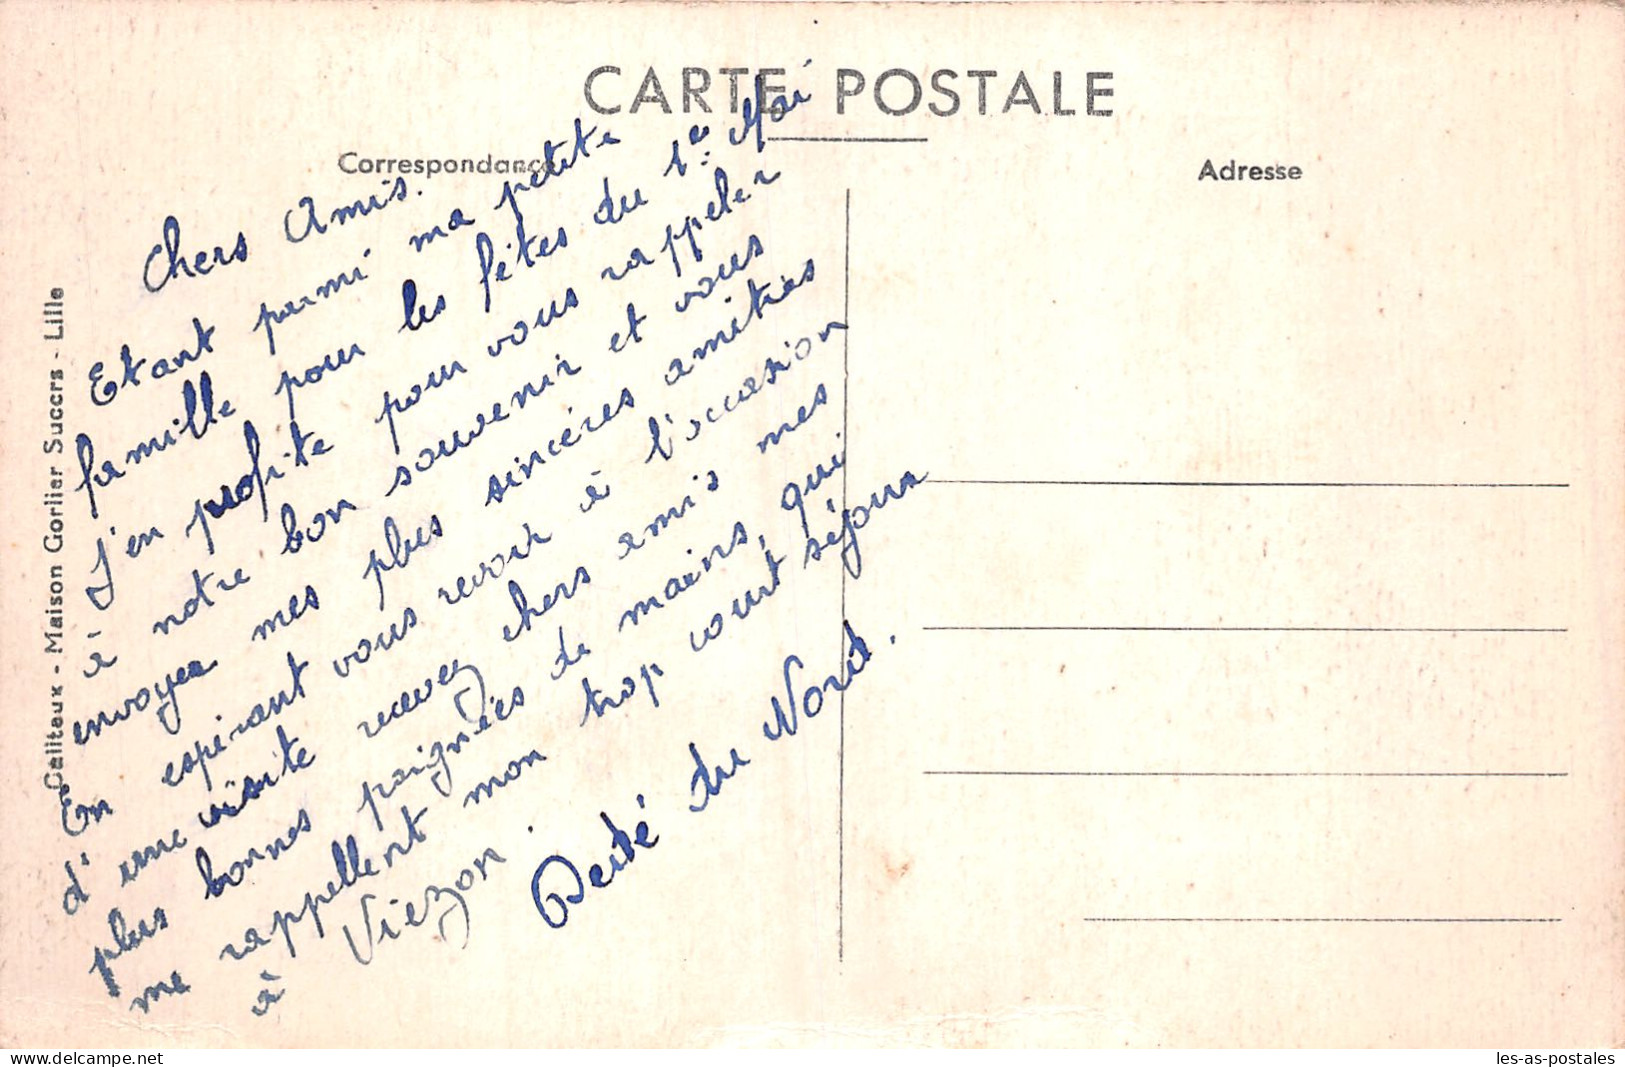 CARTE POSTALE
Correspondance
Adresse
Cailteux - Maison Gorlier Succrs - Lille
Chers Amis.
Etant parmi ma petite
famille pour les fêtes du 1er Mai
j'en profite pour vous rappeler
à notre bon souvenir et vous
envoyer mes plus sincères amitiés
En espérant vous revoir à l'occasion
d'une visite recevez chers amis mes
plus bonnes poignées de mains, qui
me rappellent mon trop court séjour
à Viezon.
du Nord.
delcampe.net
les-as-postales